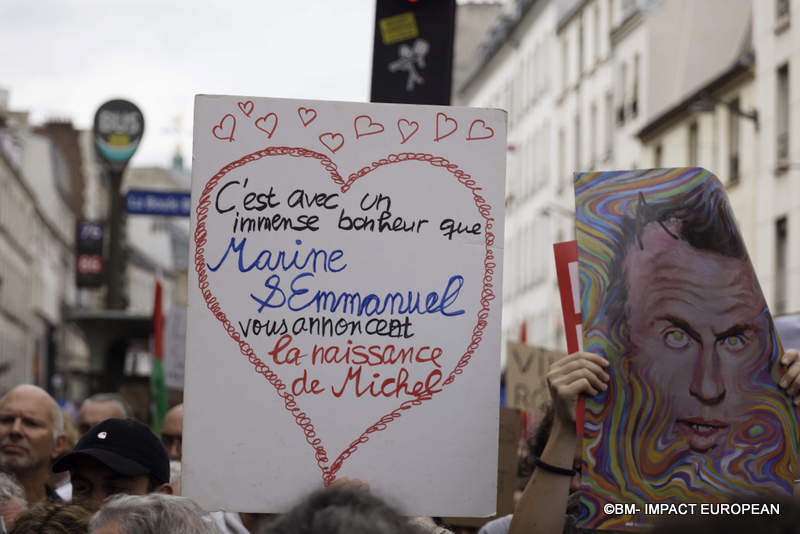 BUS
86
C'est avec un
immense bonheur que
Marine
& Emmanuel
vous annoncent
la naissance
de Michel
©BM- IMPACT EUROPEAN